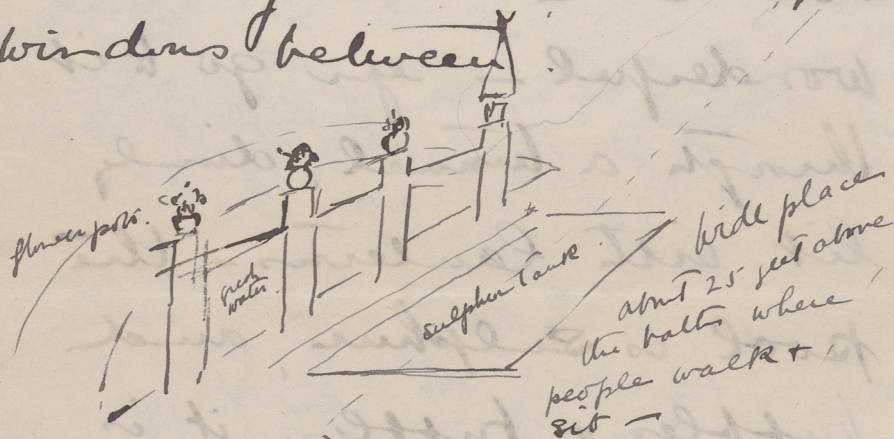 windows between.
flower pots.
fresh
water.
sulphur Tank.
wide place
about 25 feet above
the baths where
people walk +
sit —